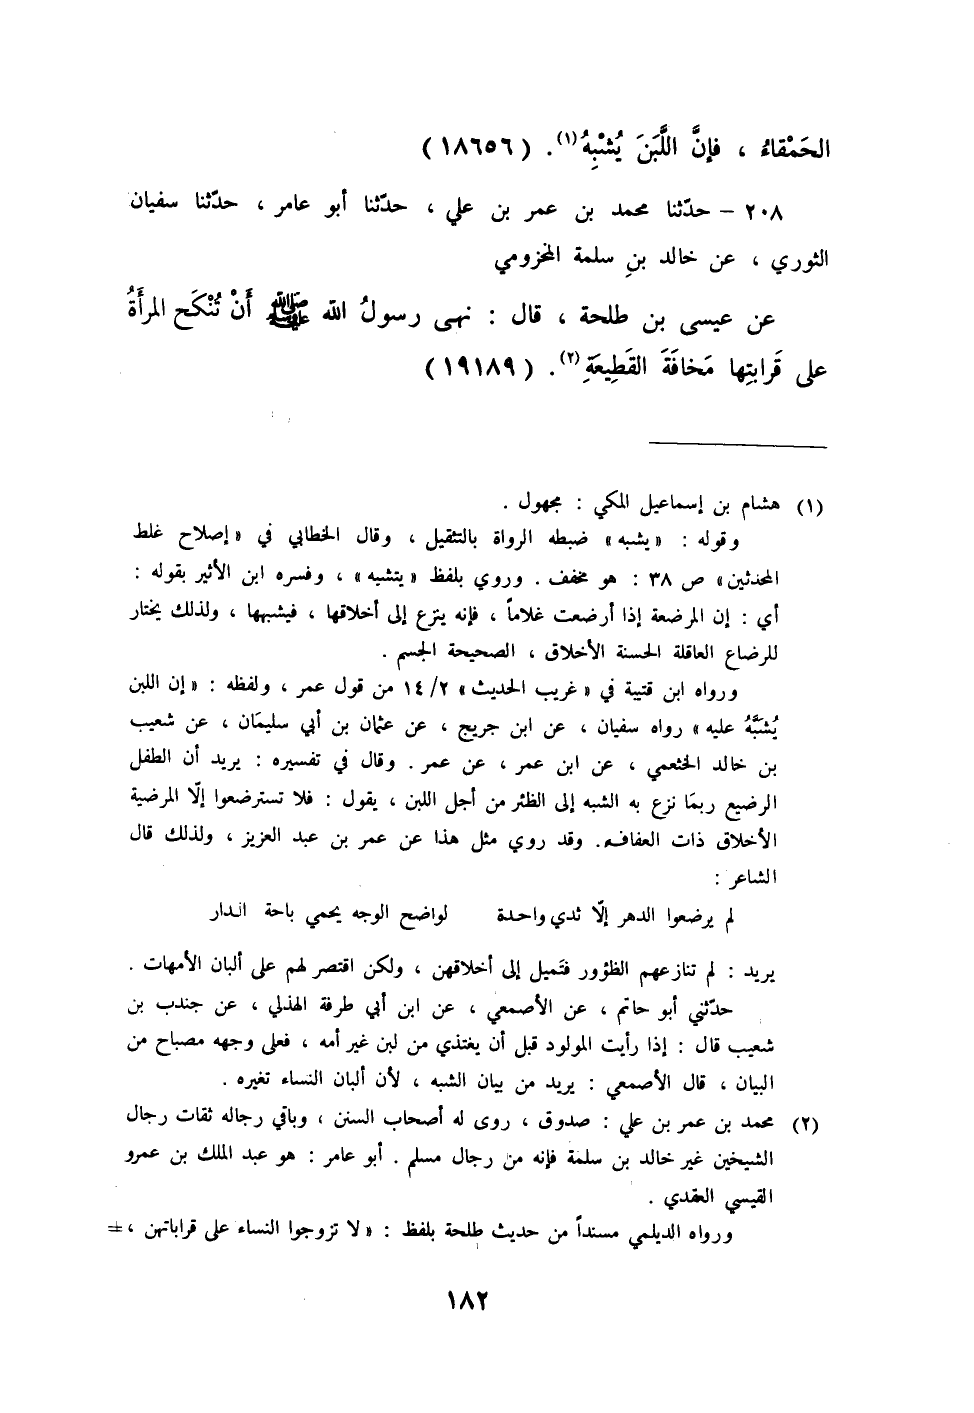 الحَمْقاءُ ، فإنَّ اللَّبَنَ يُشْبِهُ(١). (١٨٦٥٦)
٢٠٨ - حدّثنا محمد بن عمر بن علي ، حدّثنا أبو عامر ، حدّثنا سفيان
الثوري ، عن خالد بنِ سلمة المخزومي
عن عيسى بن طلحة ، قال : نهى رسولُ الله ﷺ أَنْ تُنْكَح المرأَةُ
على قَرابتِها مَخافَةَ القَطِيعَةِ(٢). (١٩١٨٩)
(١) هشام بن إسماعيل المكي : مجهول .
وقوله : «يشبه» ضبطه الرواة بالتثقيل ، وقال الخطابي في «إصلاح غلط
المحدثين» ص ٣٨ : هو مخفف . وروي بلفظ «يتشبه» ، وفسره ابن الأثير بقوله :
أي : إن المرضعة إذا أرضعت غلاماً ، فإنه ينزع إلى أخلاقها ، فيشبهها ، ولذلك يختار
للرضاع العاقلة الحسنة الأخلاق ، الصحيحة الجسم .
ورواه ابن قتيبة في «غريب الحديث» ١٤/٢ من قول عمر ، ولفظه : «إن اللبن
يُشَبَّهُ عليه» رواه سفيان ، عن ابن جريج ، عن عثمان بن أبي سليمَان ، عن شعيب
بن خالد الخثعمي ، عن ابن عمر ، عن عمر . وقال في تفسيره : يريد أن الطفل
الرضيع ربمَا نزع به الشبه إلى الظئر من أجل اللبن ، يقول : فلا تسترضعوا إلّا المرضية
الأخلاق ذات العفاف. وقد روي مثل هذا عن عمر بن عبد العزيز ، ولذلك قال
الشاعر :
لم يرضعوا الدهر إلّا ثدي واحدة لواضح الوجه يحمي باحة الدار
يريد : لم تنازعهم الظؤور فتَميل إلى أخلاقهن ، ولكن اقتصر لهم على ألبان الأمهات .
حدّثني أبو حاتم ، عن الأصمعي ، عن ابن أبي طرفة الهذلي ، عن جندب بن
شعيب قال : إذا رأيت المولود قبل أن يغتذي من لبن غير أمه ، فعلى وجهه مصباح من
البيان ، قال الأصمعي : يريد من بيان الشبه ، لأن ألبان النساء تغيره .
(٢) محمد بن عمر بن علي : صدوق ، روى له أصحاب السنن ، وباقي رجاله ثقات رجال
الشيخين غير خالد بن سلمة فإنه من رجال مسلم . أبو عامر : هو عبد الملك بن عمرو
القيسي العقدي .
ورواه الديلمي مسنداً من حديث طلحة بلفظ : «لا تزوجوا النساء على قراباتهن ، =
١٨٢